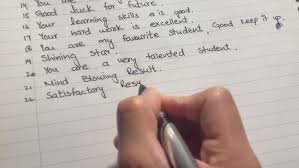 14 You are
15 Good luck for future.
16 Your learning skills a is good.
17 Your hard work is excellent.
18 You are my favourite student, Good keep it up.
19 Shining star.
20 You are a very talented student.
21 Mind Blowing Result.
22 Satisfactory Resu